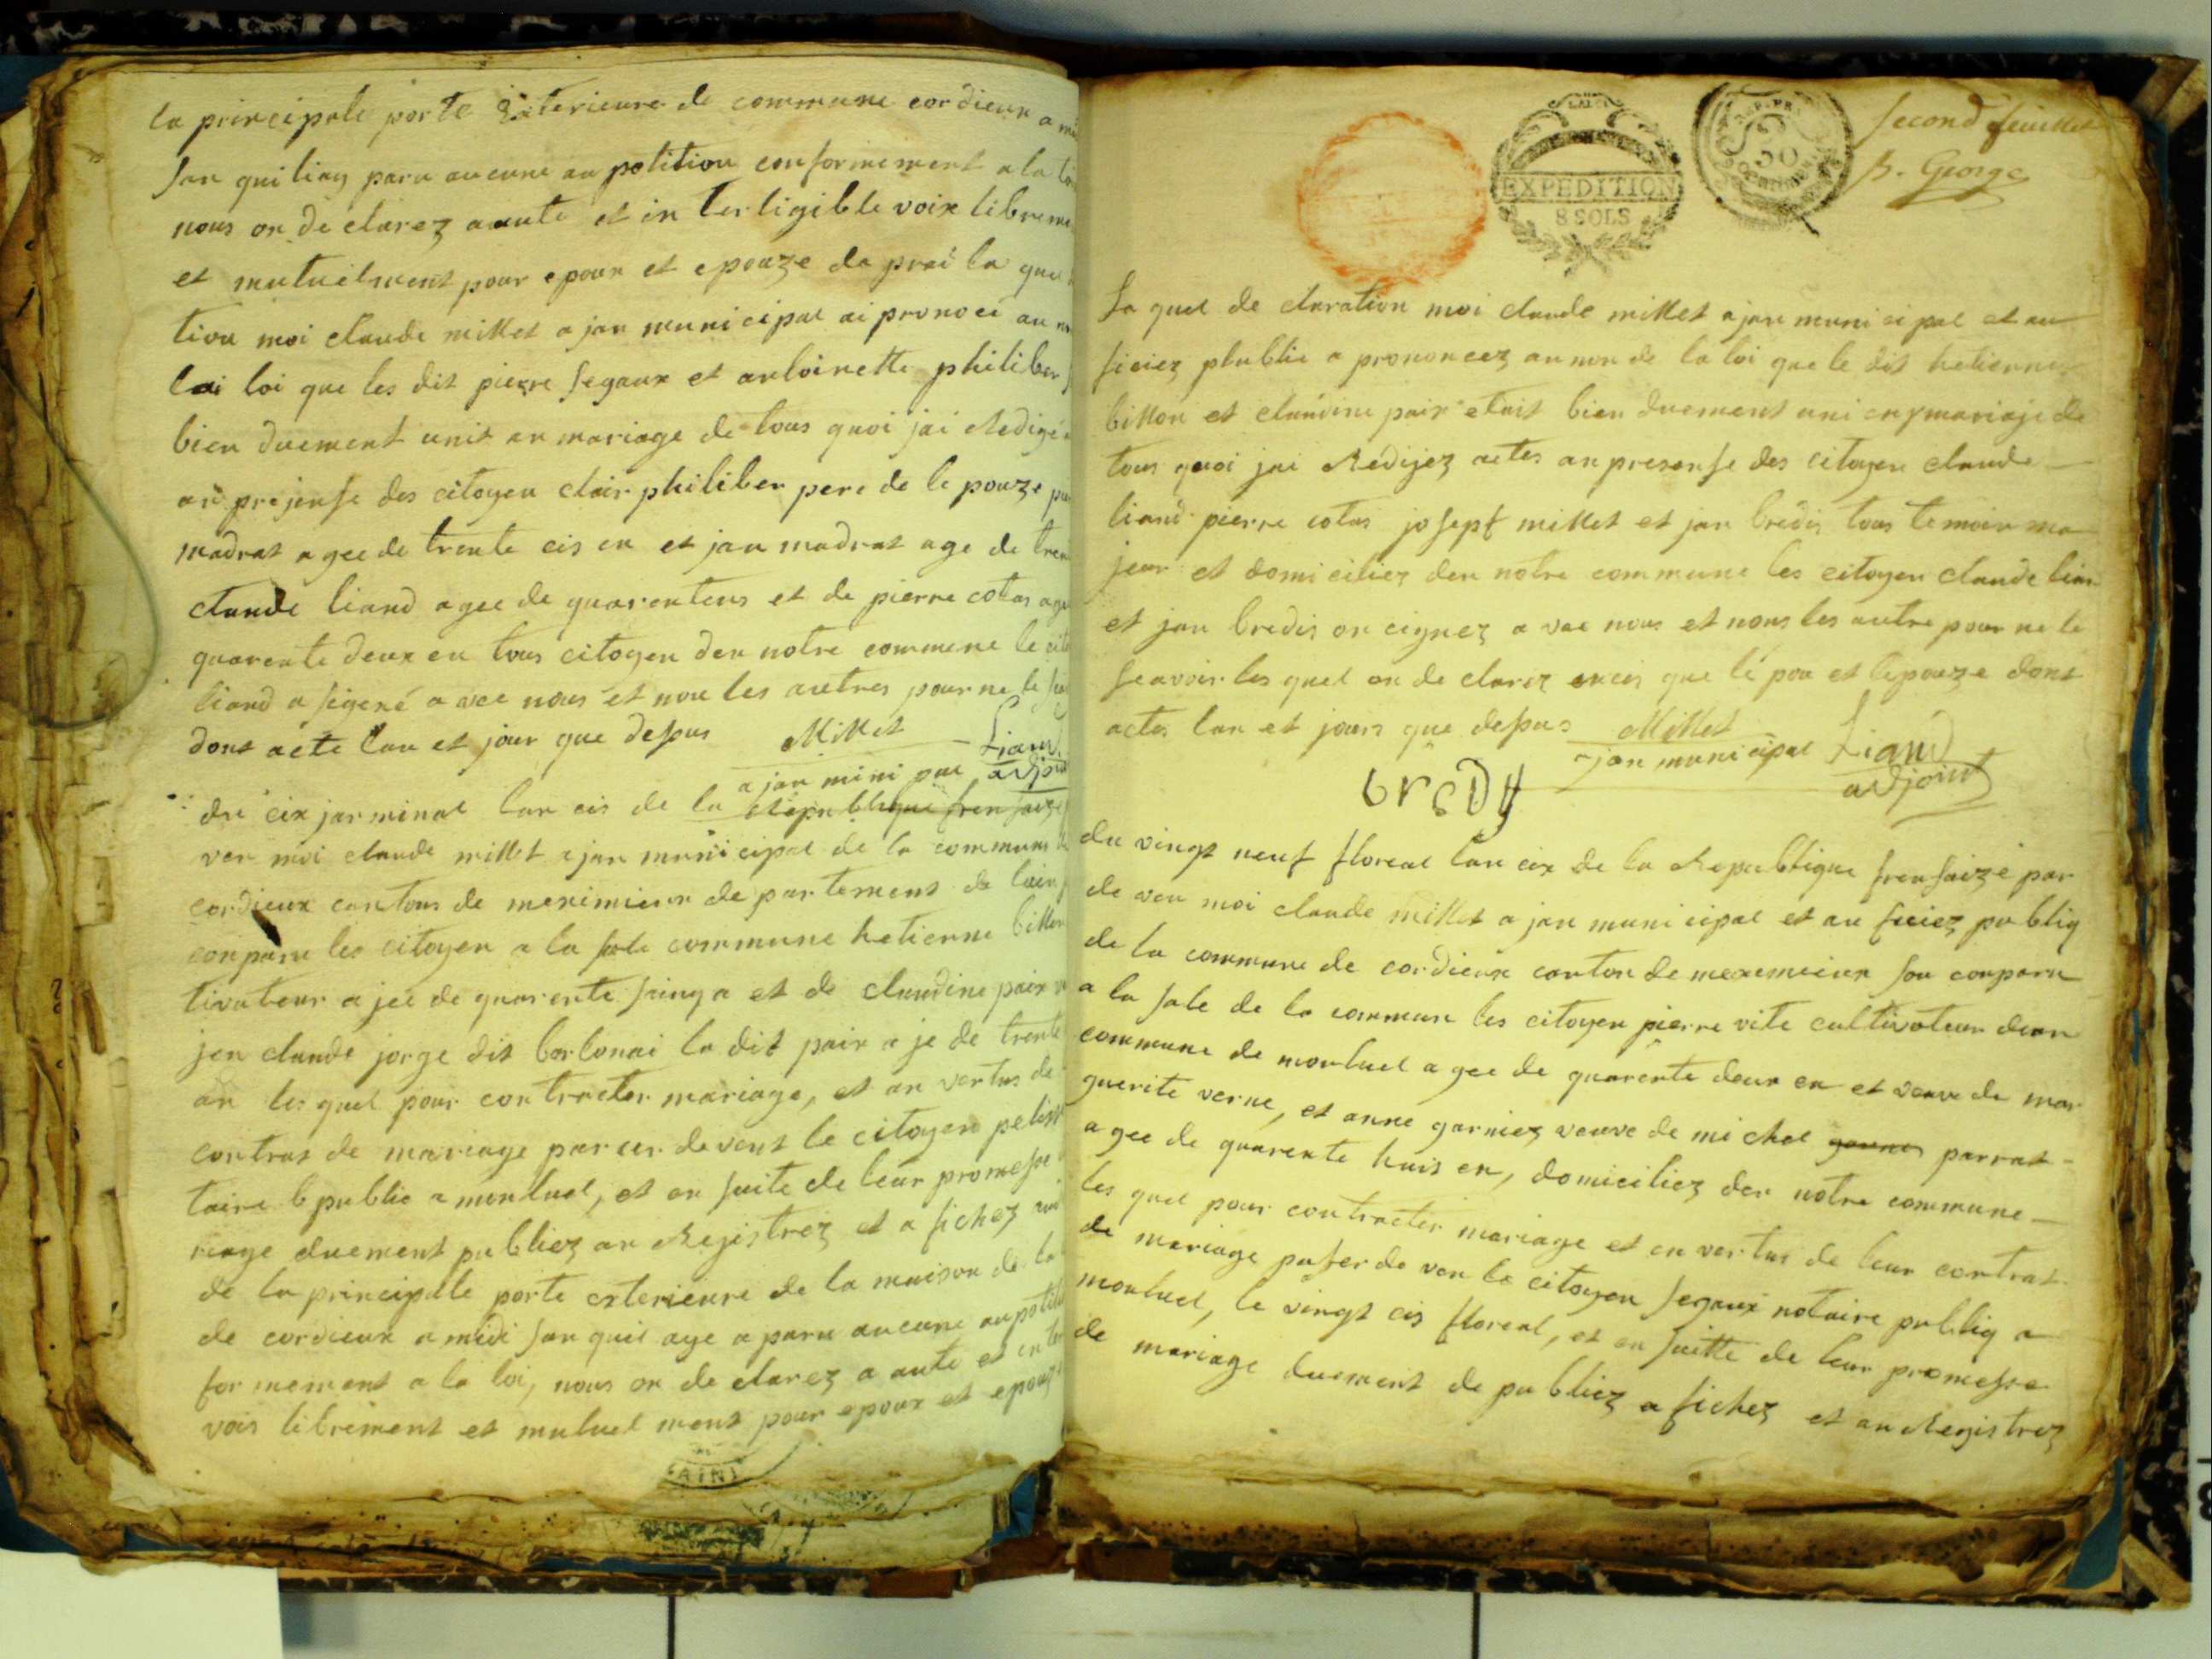 la principale porte exterieure de commune cordieux a
san qui liay paru aucune au potition conformement a la
nous on de clarez aaute et in terligible voix libreme
et mutuelment pour epoux et epouze da prei la que
tion moi claude millet a jan municipal ai pronoci au
lai loi que les dit pierre segaux et antoinette philiber
bien duement unit an mariage de tous quoi jai Redigé
an prejense des citoyen clair philiber pere de le pouze
madrat agee de trente cis en et jan madrat age de
claude liand agee de quarenteus et de pierre cotas
quarente deux en tous citoyen den notre commene le
liand a signé a vec nous et non les autres pour ne le
dont acte lan et jour que desous Millet Liand
a jan mini pal adjoint
du cix jarminal lan cis de la Republique fransaize
ven moi claude millet ajan municipal de la commune
cordieux contons de meximieux de partement de lain
conparu les citoyen a la sale commune hetienne billon
tivateur a jee de quarente sainq a et de claudine paix
jen claude jorge dit barlonai la dit paix a je de trente
an les quel pour contracter mariage, et an vertus de
contrat de mariage parcer devent le citoyen
taire b public a montluel, et an suite de leur promesse
riage duement publiez an Registrez et a fichez
de la principalle porte exterieure de la maison de la
de cordieux a midi san quil aye a paru aucune
for mement a la loi, nous on de clarez a aute et
vois librement et mutuel ment pour epoux et epouz
AIN
second feuillet
B. George
EXPEDITION
8 SOLS
50
La quel de claration moi claude millet ajan municipal et au
ficiez plublic a prononcez au non de la loi que le dit hetienne
billon et claudine paix etait bien duement uni en mariaje de
tous quoi jai Redijez actes an presense des citoyen claude
liand pierre cotas josept millet et jan bredis tous temoin ma
jeur et domiciliez den notre commune les citoyen claude lian
et jan bredis on cignez a vec nous et nons les autre pour ne le
scavoir les quel on de clarez que lé pou et lepouze dont
actes lan et jours que desus Millet
ajan municipal Liand
adjoint
brsdy
du vingt neuf floreal lan cix de la Republique fransaize par
de ven moi claude millet a jan municipal et au ficiez publiq
de la commune de cordieux conton de meximieux son conparu
a la sale de la commune les citoyen pierre vite cultivateur den
commune de montluel agee de quarente deux en et veuve de mar
guerite verne, et anne garniez veuve de michel parrat
agee de quarente huis en, domiciliez den notre commune
les quel pour contracter mariage et en vertus de leur contrat
de mariage paser de ven le citoyen segaux notaire publiq a
montluel, le vingt cis floreal, et en suitte de leur promesse
de mariage duement de publiez a fichez et an Registrez